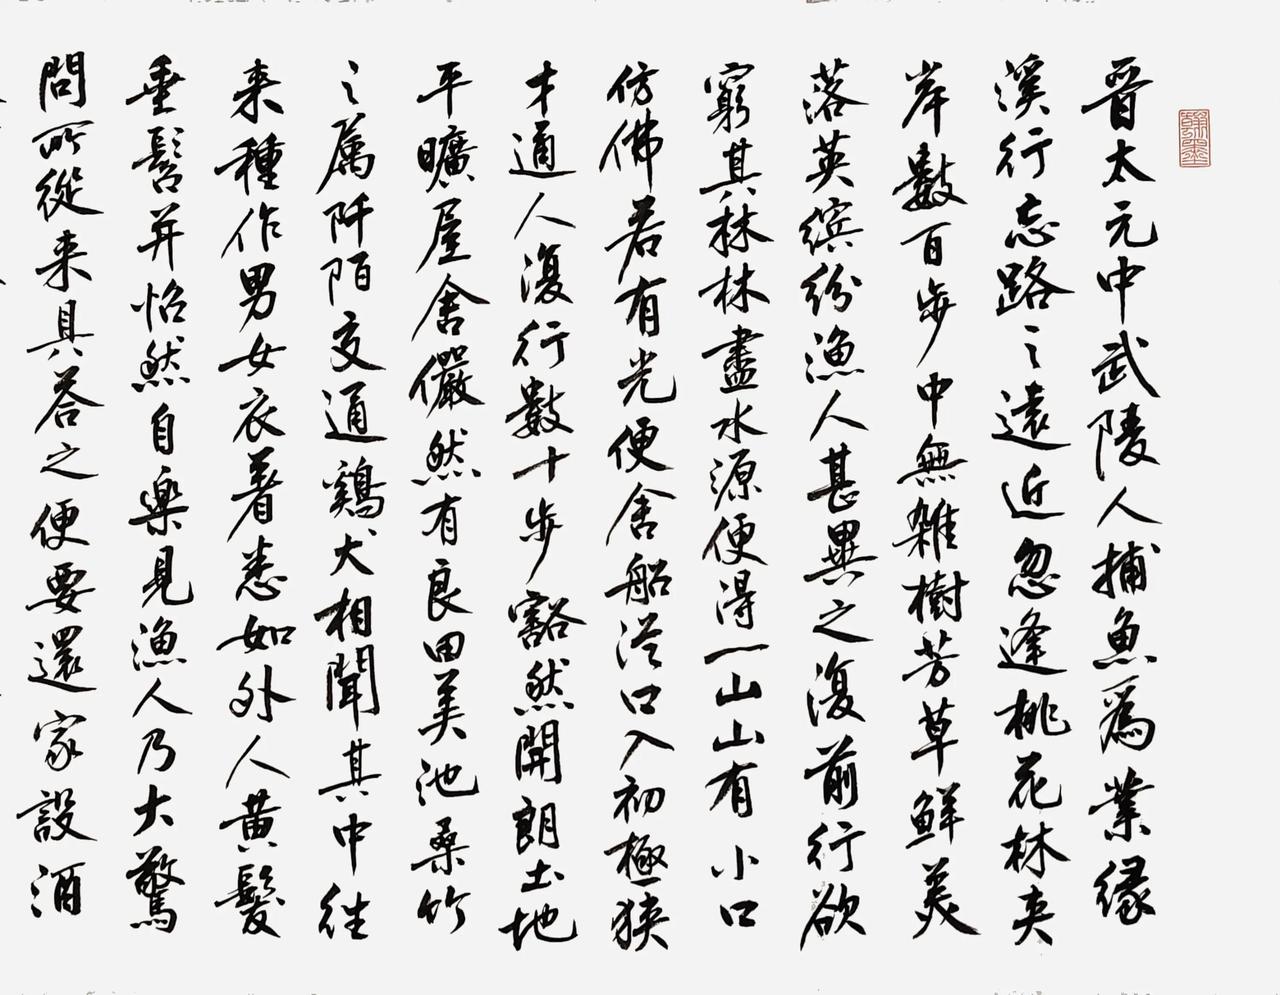 翰墨
晋太元中武陵人捕魚爲業緣
溪行忘路之遠近忽逢桃花林夹
岸數百步中無雑樹芳草鲜美
落英缤纷漁人甚異之復前行欲
窮其林林盡水源便得一山山有小口
仿佛若有光便舍船從口入初極狹
才通人復行數十步豁然開朗土地
平曠屋舍儼然有良田美池桑竹
之属阡陌交通鷄犬相聞其中往
来種作男女衣着悉如外人黄髮
垂髫并怡然自樂見漁人乃大驚
問所從来具答之便要還家設酒